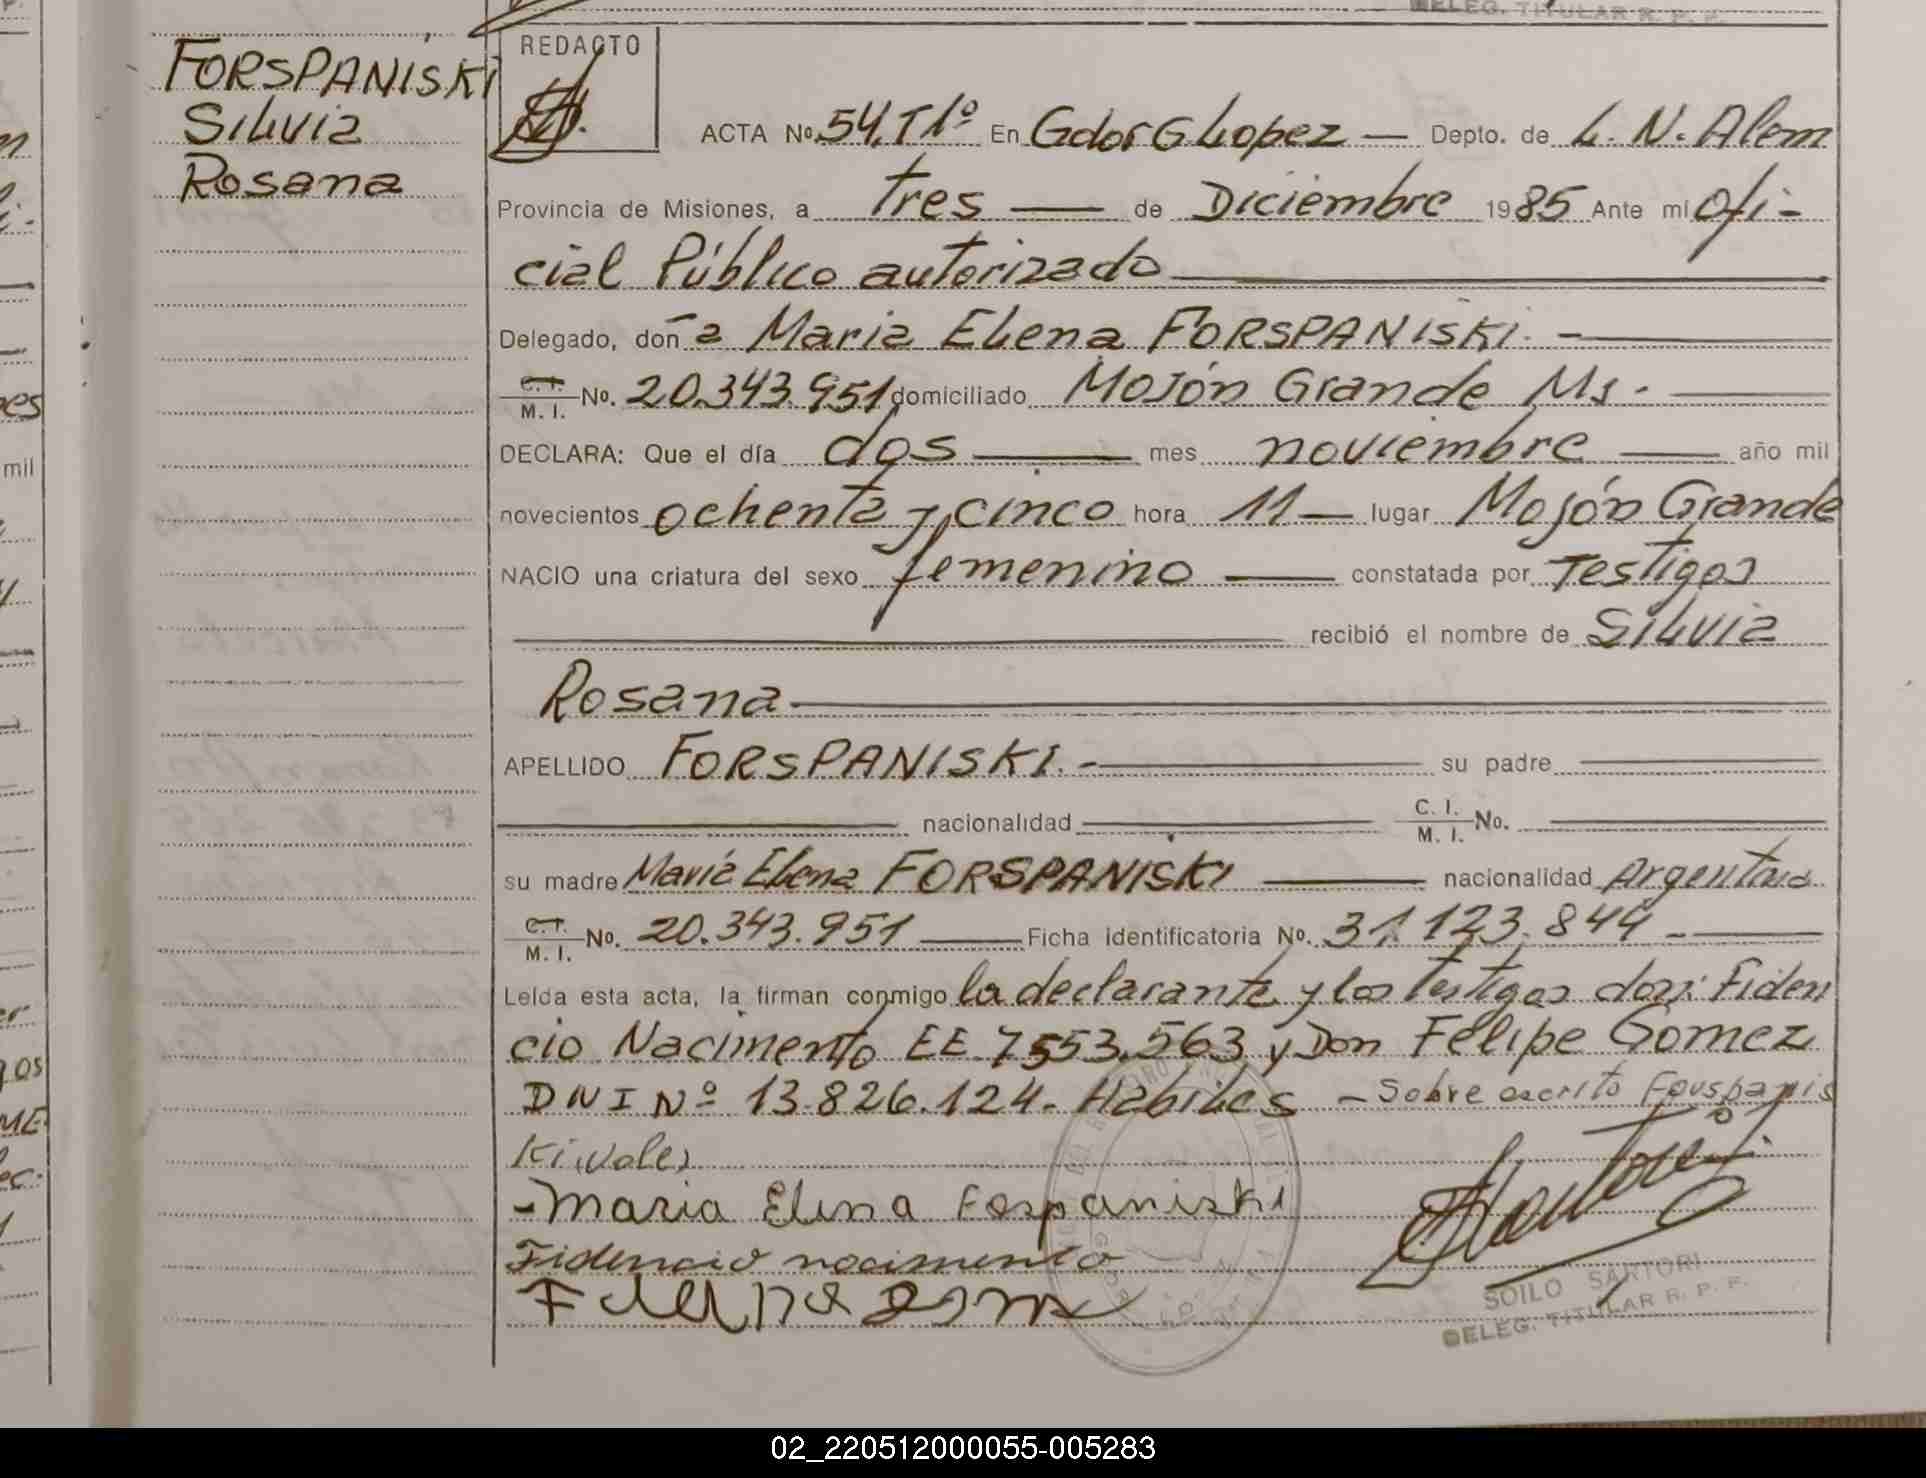 DELEG. TITULAR R. P. P.
FORSPANISKI
Silvia
Rosana
REDACTO
ACTA No. 54, T1º En Gdor G Lopez — Depto. de L. N. Alem
Provincia de Misiones, a tres — de Diciembre 1985 Ante mi Ofi-
cial Público autorizado
Delegado, don a Maria Elena FORSPANISKI. —
C. I. M. I. No. 20.343.951 domiciliado Mojón Grande Ms. —
DECLARA: Que el día dos — mes noviembre — año mil
novecientos ochenta y cinco hora 11 — lugar Mojón Grande
NACIO una criatura del sexo femenino — constatada por Testigos
recibió el nombre de Silvia
Rosana —
APELLIDO FORSPANISKI. — su padre —
nacionalidad — C. I. M. I. No. —
su madre Maria Elena FORSPANISKI — nacionalidad Argentina
C. I. M. I. No. 20.343.951 — Ficha identificatoria No. 31.123.844 —
Leída esta acta, la firman conmigo la declarante y los testigos don: Fiden
cio Nacimento EE. 7553.563 y Don Felipe Gomez
DNI Nº 13.826.124. Hábiles — Sobre escrito Forspanis
ki, vale)
- Maria Elena Forspaniski
Fidencio nacimento
SOILO SARTORI
DELEG. TITULAR R. P. P.
02_220512000055-005283